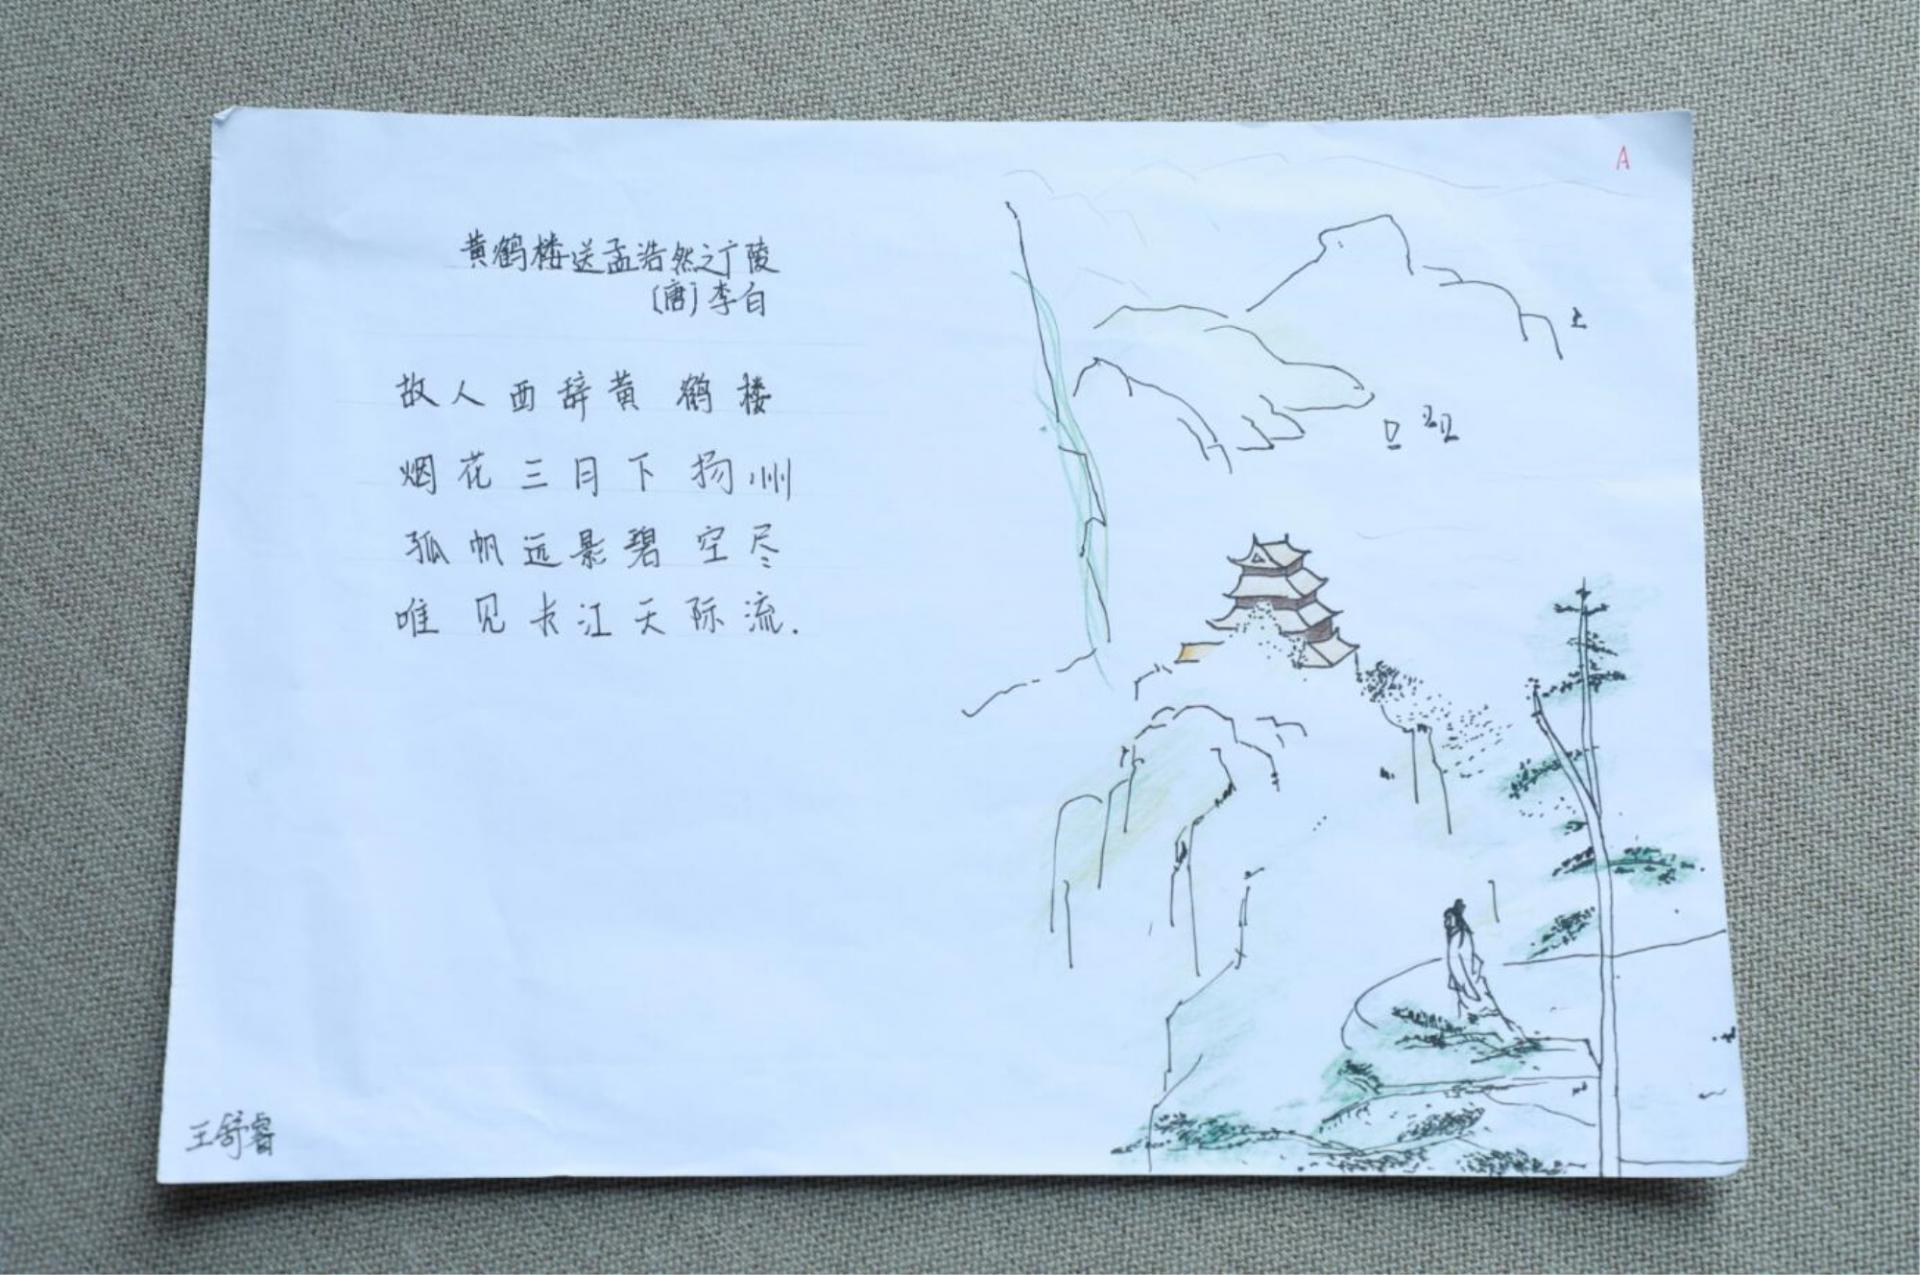 黄鹤楼送孟浩然之广陵
(唐)李白
故人西辞黄鹤楼
烟花三月下扬州
孤帆远景碧空尽
唯见长江天际流.
王舒睿
A